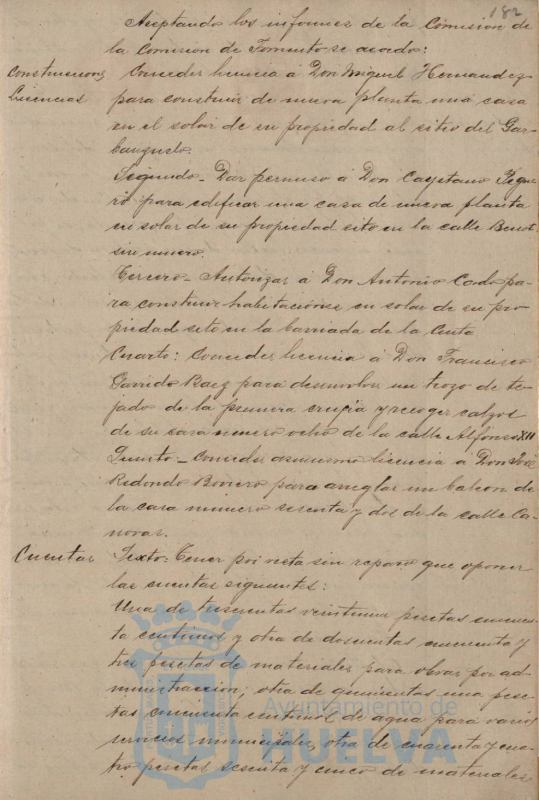 182
Aceptando los informes de la Comision de
la Comision de Fomento se acordó:
Construcciones
Licencias
Conceder licencia á Don Miguel Hernandez
para construir de nueva planta una casa
en el solar de su propiedad al sitio del Gar-
banzuelo.
Segundo - Dar permiso á Don Cayetano
para edificar una casa de nueva planta
en solar de su propiedad sito en la calle Benot
sin numero.
Tercero - Autorizar á Don Antonio Cordo pa-
ra construir habitaciones en solar de su pro-
piedad sito en la barriada de la Cinta
Cuarto: Conceder licencia á Don Francisco
Garrido Baez para desenvolver un trozo de te-
jado de la primera crugia y recoger calzos
de su casa numero ocho de la calle Alfonso XII
Quinto - Conceder asimismo licencia á Don José
Redondo Borrero para arreglar un balcon de
la casa numero sesenta y dos de la calle Ca-
novas.
Cuentas
Sexto: Tener por vista sin reparo que oponer
las cuentas siguientes:
Una de trescientas veintiuna pesetas cincuen-
ta centimos y otra de doscientas cincuenta y
tres pesetas de materiales para obras por ad-
ministracion; otra de quinientas una pese-
tas cincuenta centimos de agua para varios
servicios municipales, otra de cuarenta y cua-
tro pesetas sesenta y cinco de materiales
Ayuntamiento de
HUELVA